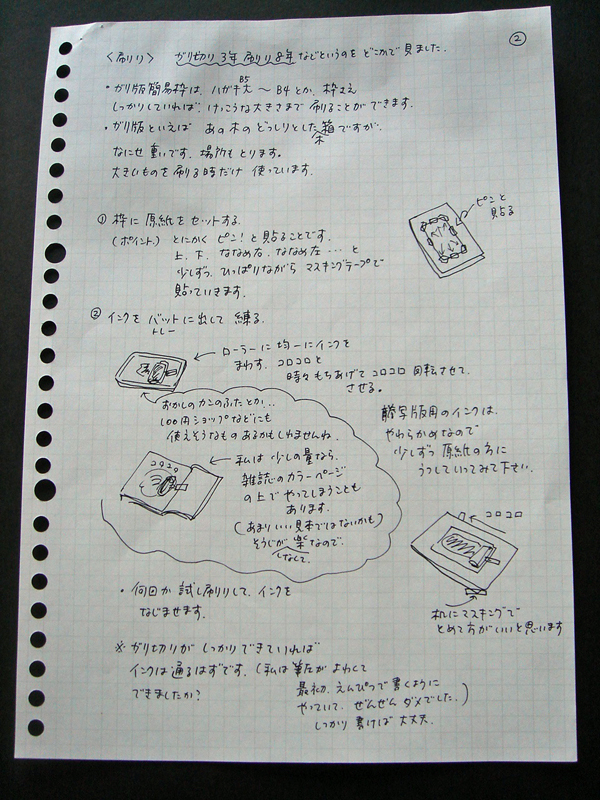 ②
〈刷り〉 ガリ切り3年 刷り8年 などというのを どこかで見ました.
・ガリ版簡易枠は、ハガキ大 〜 B4 とか、枠さえ
B5
しっかりしていれば、けっこうな大きさまで 刷ることができます.
・ガリ版といえば あの木のどっしりとした箱ですが.
木
なにせ重いです. 場所もとります.
大きいものを刷る時だけ 使っています.
① 枠に原紙をセットする.
(ポイント) とにかく ピン!と貼ることです.
上、下、ななめ右、ななめ左 … と
少しずつ、ひっぱりながら マスキングテープで
貼っていきます.
ピンと
貼る
② インクを バットに出して 練る.
トレー
ローラーに均一にインクを
まわす. コロコロと
時々もちあげてコロコロ 回転させて.
させる.
おかしのカンのふたとか…
100円ショップなどにも
使えそうなもの あるかもしれませんね.
私は 少しの量なら.
雑誌のカラーページ
の上でやってしまうことも
あります.
(あまりいい見本ではないかも)
そうじが楽なので.
しなくて.
謄写版用のインクは.
やわらかめなので
少しずつ 原紙の方に
うつしていってみて下さい.
コロコロ
机にマスキングで
とめて方がいいと思います
・何回か試し刷りして、インクを
なじませます.
※ ガリ切りが しっかりできていれば
インクは通るはずです. (私は筆圧がよわくて
できましたか?
最初、えんぴつで書くように
やっていて、ぜんぜん ダメでした.)
しっかり書けば 大丈夫.